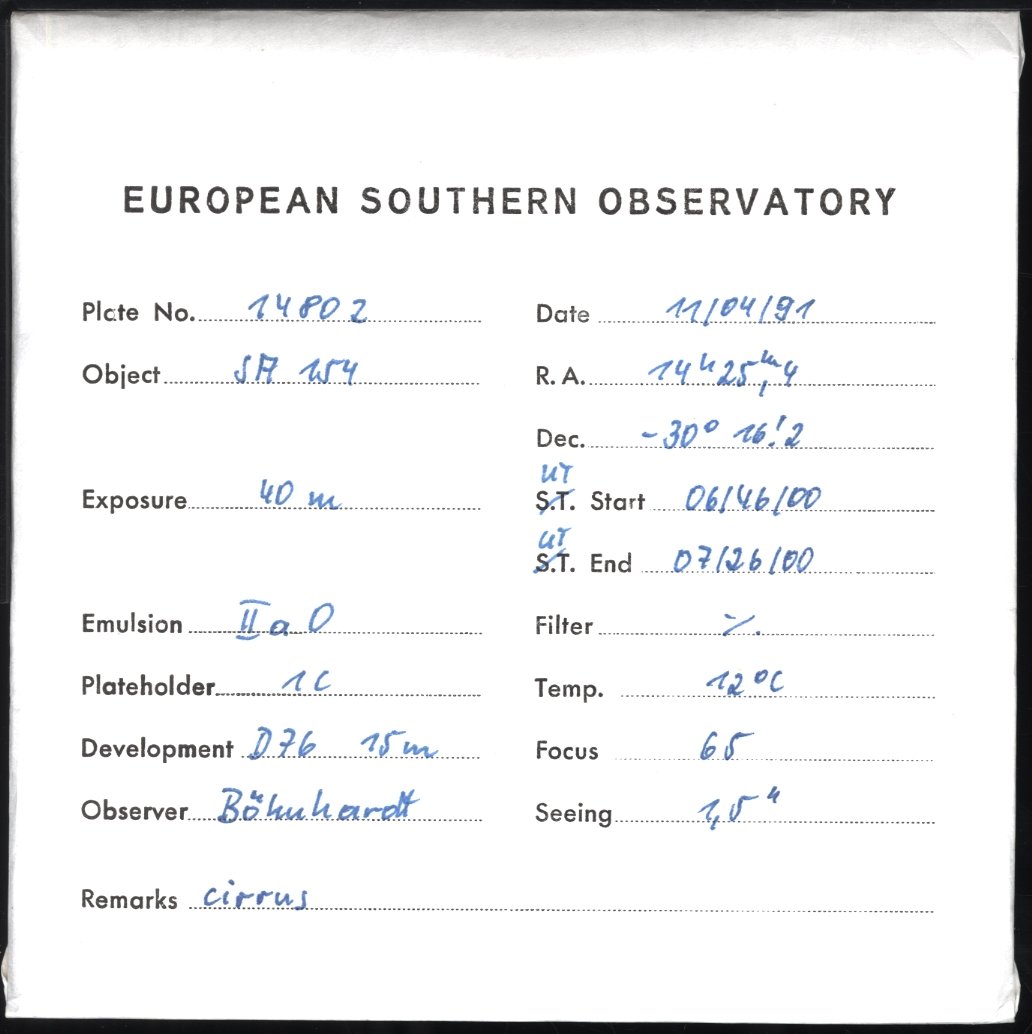 EUROPEAN SOUTHERN OBSERVATORY
Plate No. 14802 Date 11/04/91
Object SA 154 R. A. 14ʰ25ᵐ,4
Dec. -30° 16!2
UT
Exposure 40 m S.T. Start 06/46/00
UT
S.T. End 07/26/00
Emulsion IIaO Filter ./.
Plateholder 1C Temp. 12°C
Development D76 15m Focus 65
Observer Böhnhardt Seeing 1,5"
Remarks cirrus